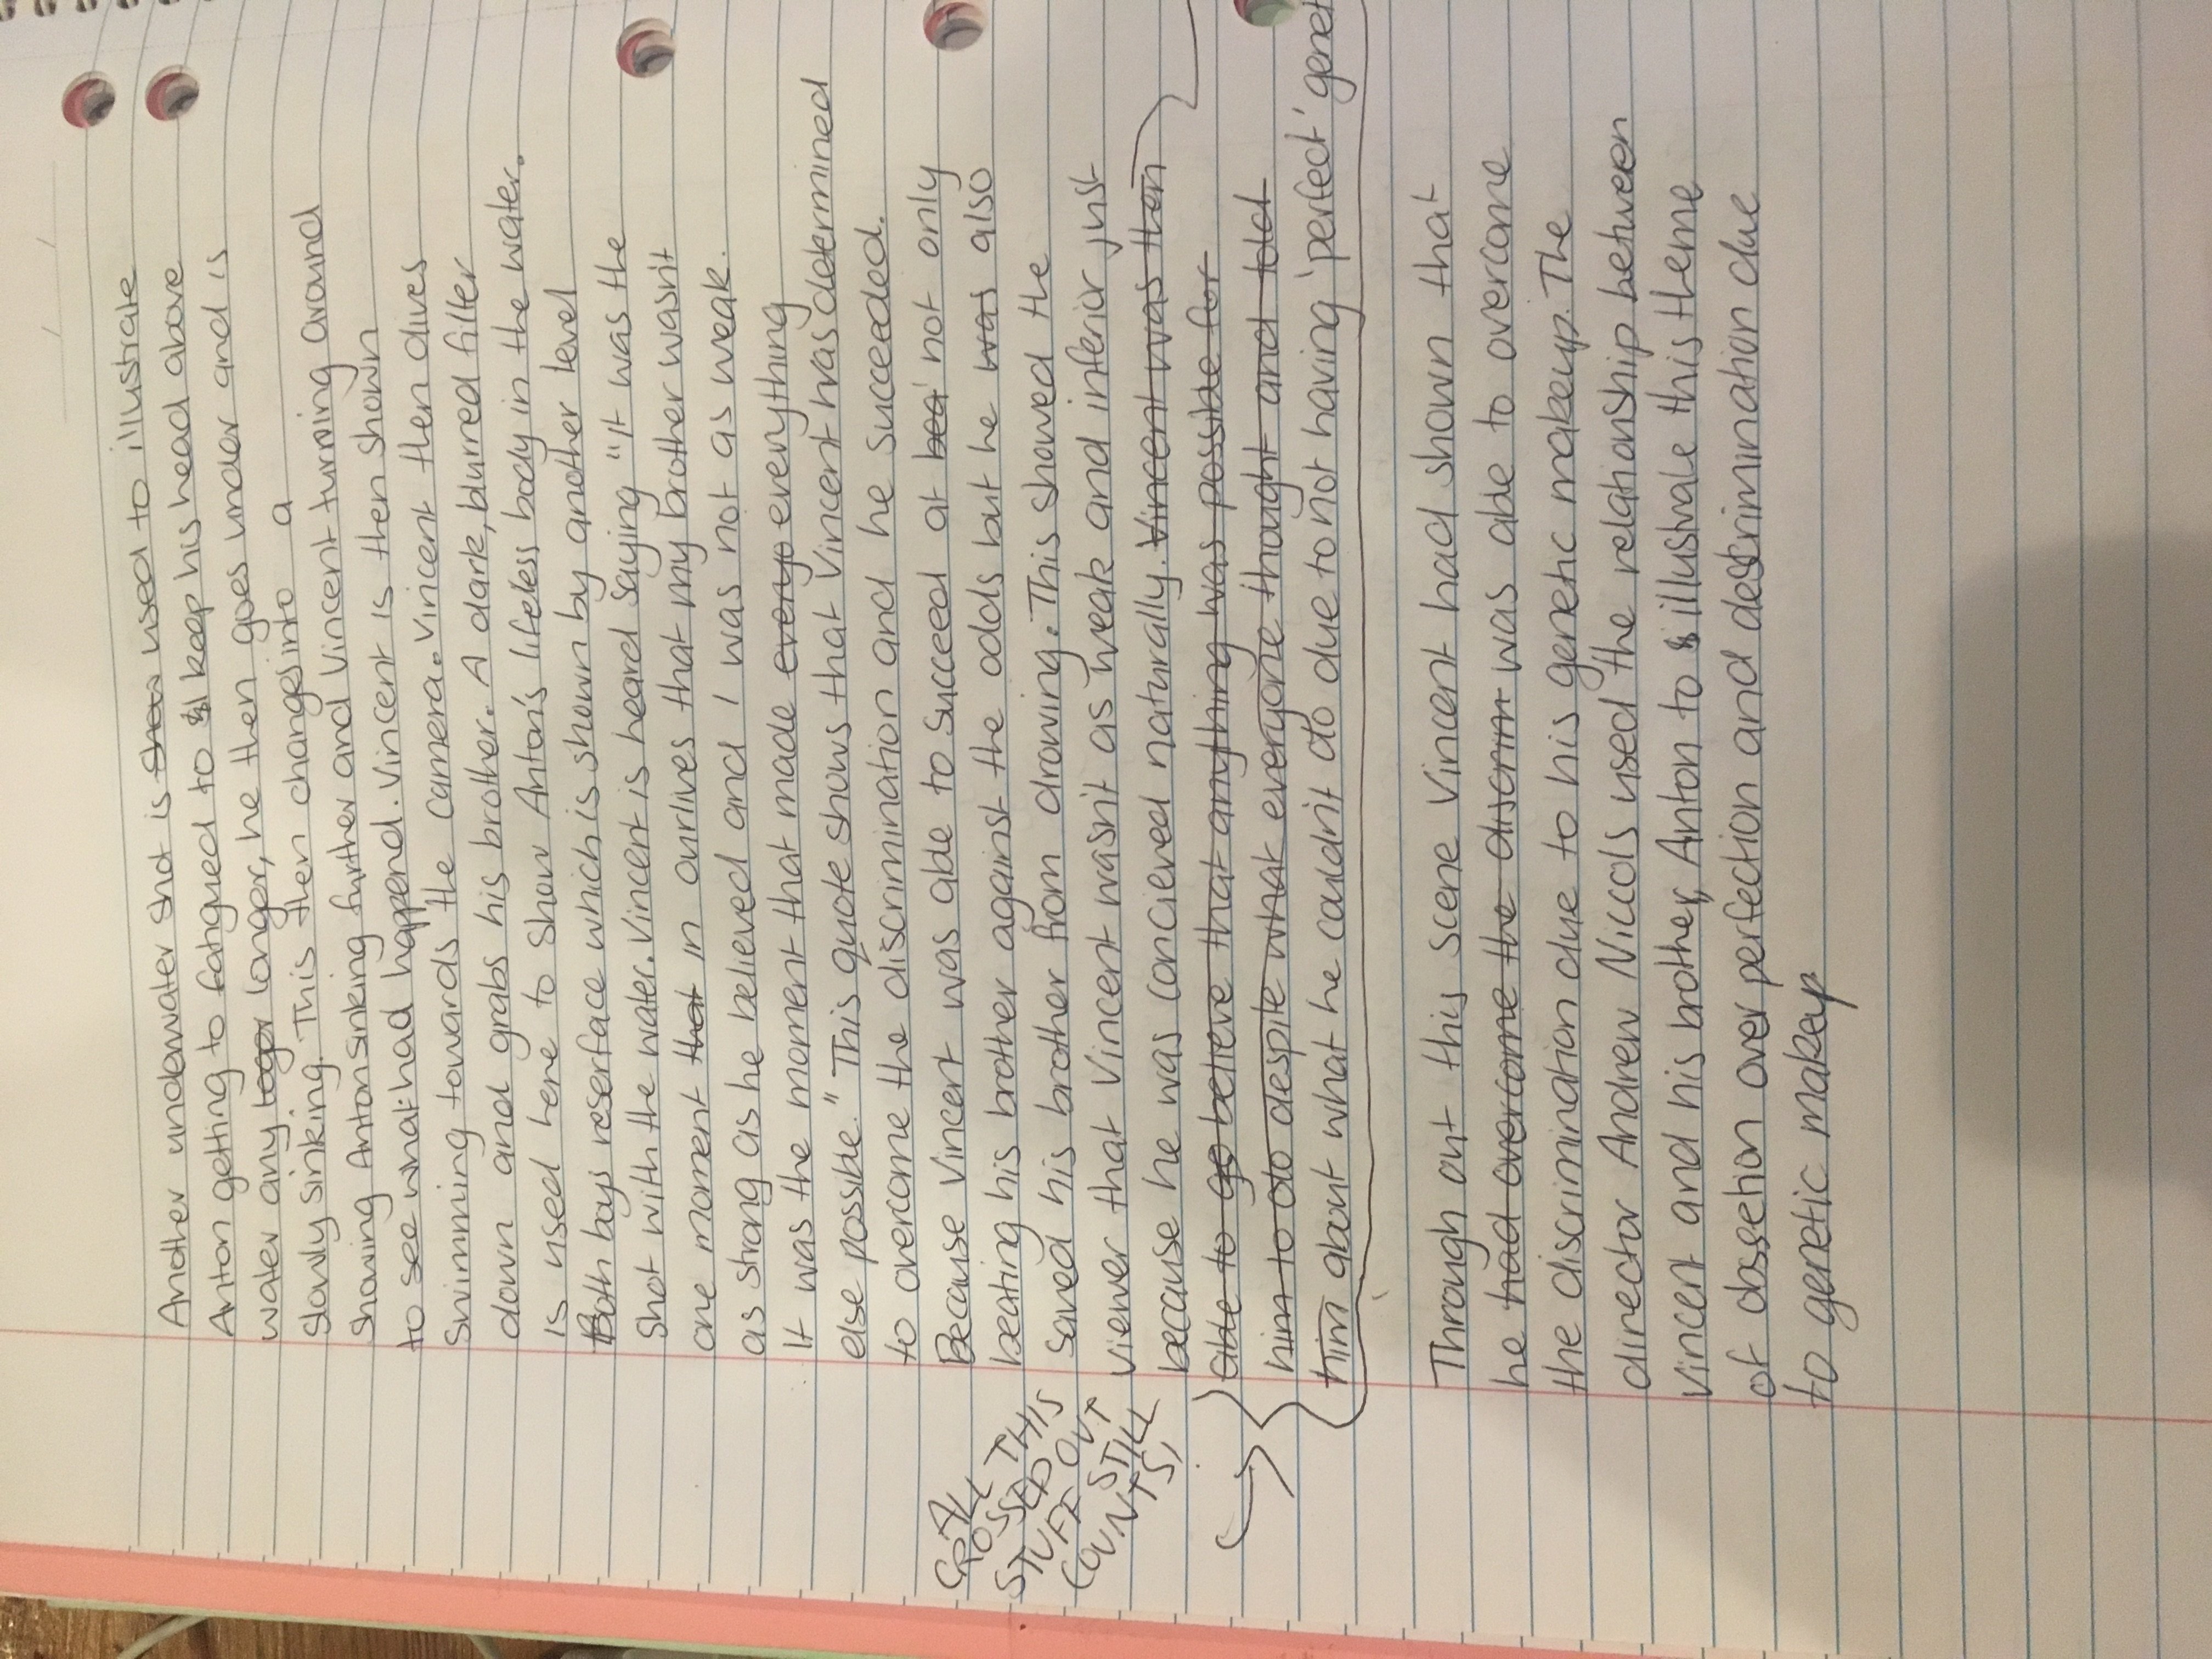 Another underwater shot is show used to illustrate
Anton getting to fatigued to keep his head above
water any longer, he then goes under and is
slowly sinking. This then changes into a
showing Anton sinking further and Vincent turning around
to see what had happend. Vincent is then shown
swimming towards the camera. Vincent then dives
down and grabs his brother. A dark, blurred filter
is used here to show Anton's lifeless body in the water.
Both boys reserface which is shown by another level
shot with the water. Vincent is heard saying "It was the
one moment that in our lives that my brother wasn't
as strong as he believed and I was not as weak.
It was the moment that made everyo everything
else possible." This quote shows that Vincent was determined
to overcome the discrimination and he succeeded.
Because Vincent was able to succeed at beat not only
beating his brother against the odds but he was also
saved his brother from drowing. This showed the
viewer that Vincent wasn't as weak and inferior just
because he was concieved naturally. Vincent was then
able to go believe that anything was possible for
him to do despite what everyone thought and told
him about what he couldn't do due to not having 'perfect' genet
CR ALL
CROSSED THIS
STUFF OUT
COUNTS STILL
Through out this scene Vincent had shown that
he had overcome the discrim was able to overcome
the discrimination due to his genetic makeup. The
director Andrew Niccols used the relationship between
Vincent and his brother, Anton to illustrate this theme
of obssetion over perfection and desrimination due
to genetic makeup